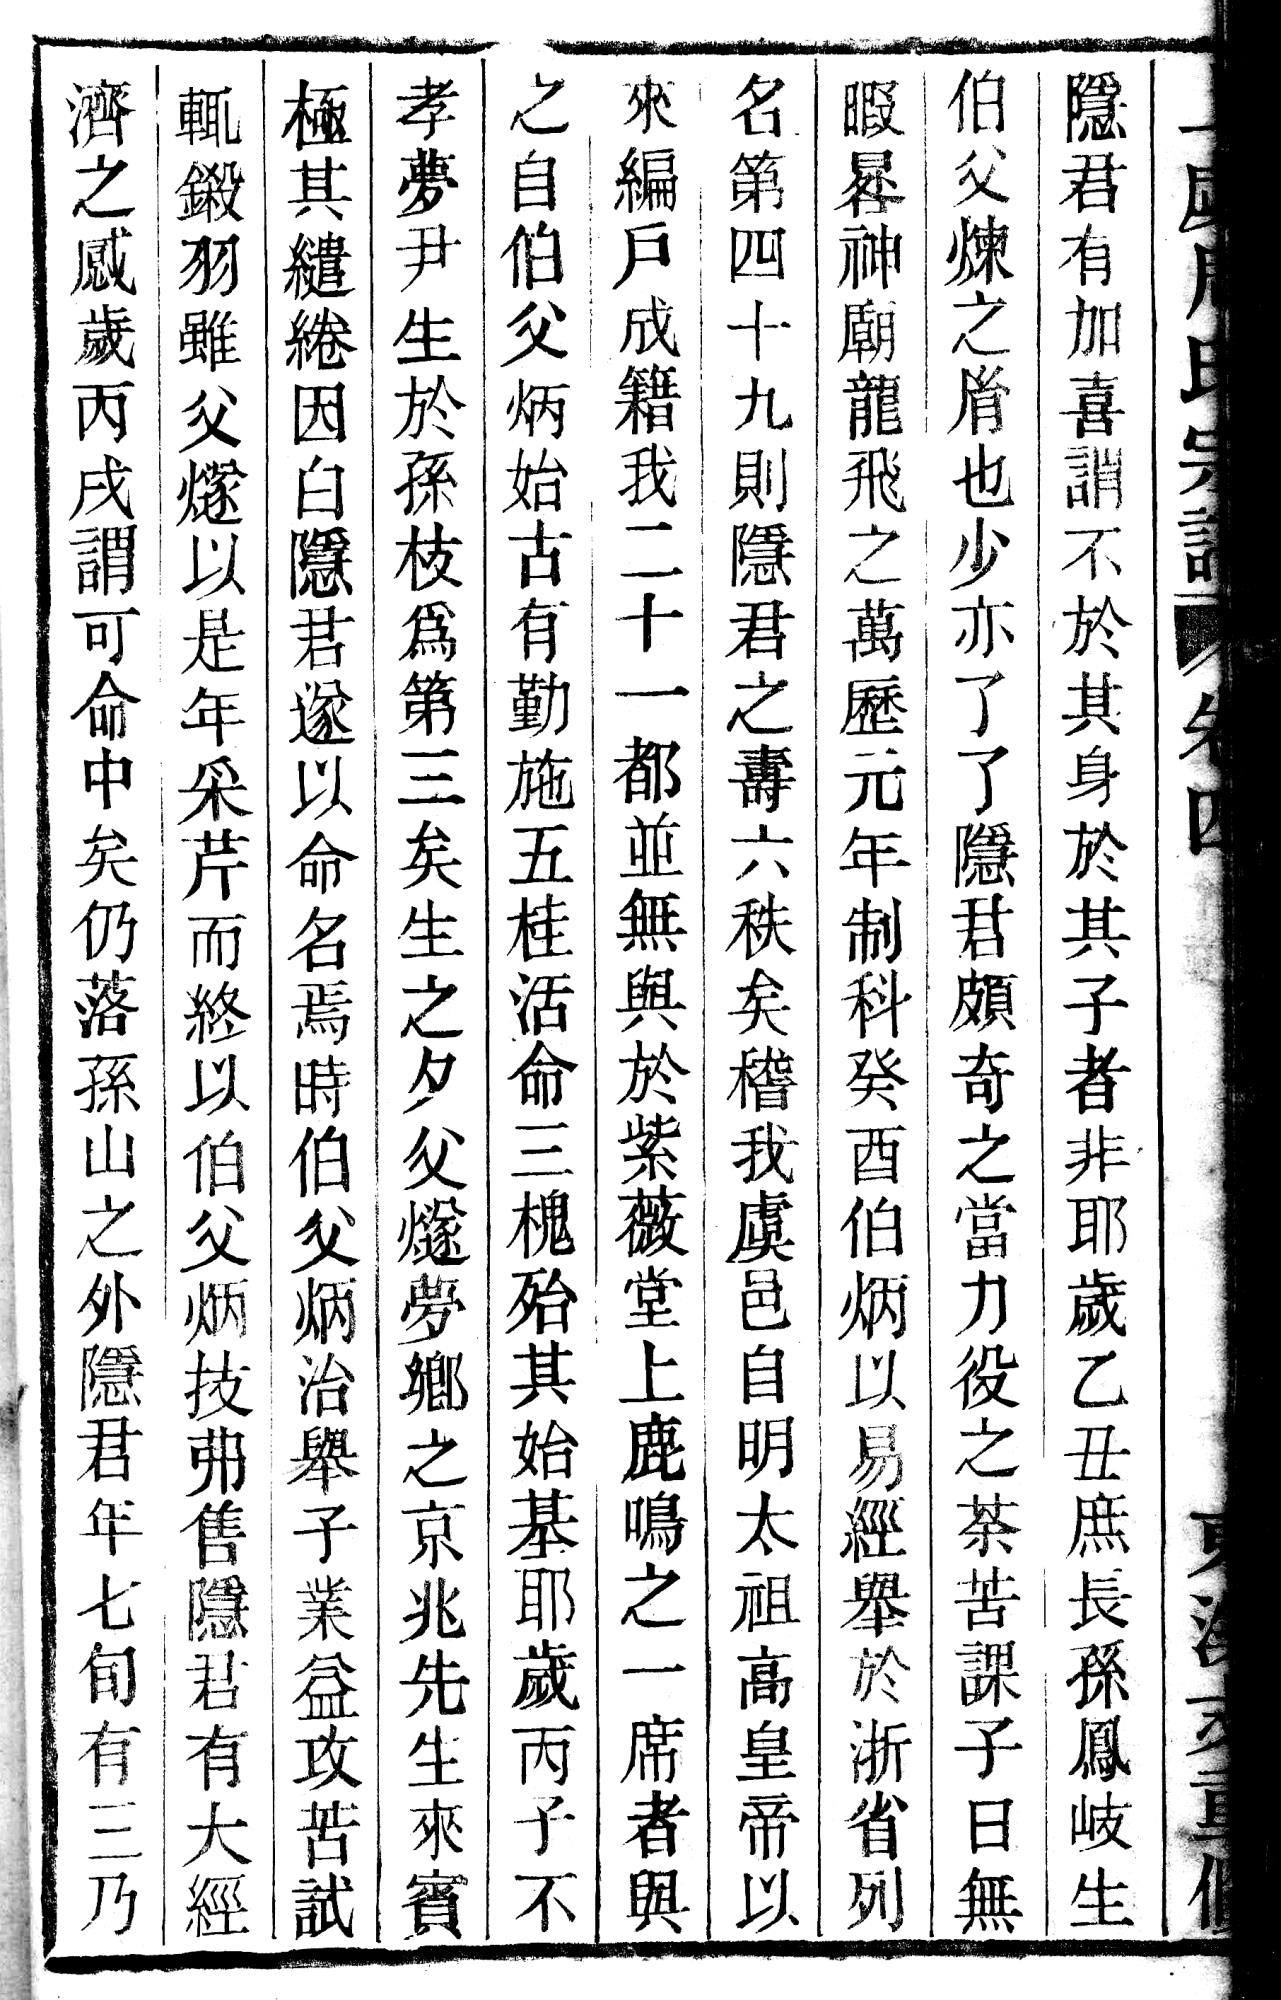 隱君有加喜誚不於其身於其子者非耶歲乙丑庶長孫鳳岐生
伯父煉之胤也少亦了了隱君頗奇之當力役之荼苦課子日無
暇晷神廟龍飛之萬歷元年制科癸酉伯炳以易經舉於浙省列
名第四十九則隱君之壽六秩矣稽我虞邑自明太祖高皇帝以
來編戶成籍我二十一都並無與於紫薇堂上鹿鳴之一席者與
之自伯父炳始古有勤施五桂活命三槐殆其始基耶歲丙子不
孝夢尹生於孫枝爲第三矣生之夕父燧夢鄉之京兆先生來賓
極其繾綣因白隱君遂以命名焉時伯父炳治舉子業益攻苦試
輒鎩羽雖父燧以是年采芹而終以伯父炳技弗售隱君有大經
濟之感歲丙戌謂可命中矣仍落孫山之外隱君年七旬有三乃